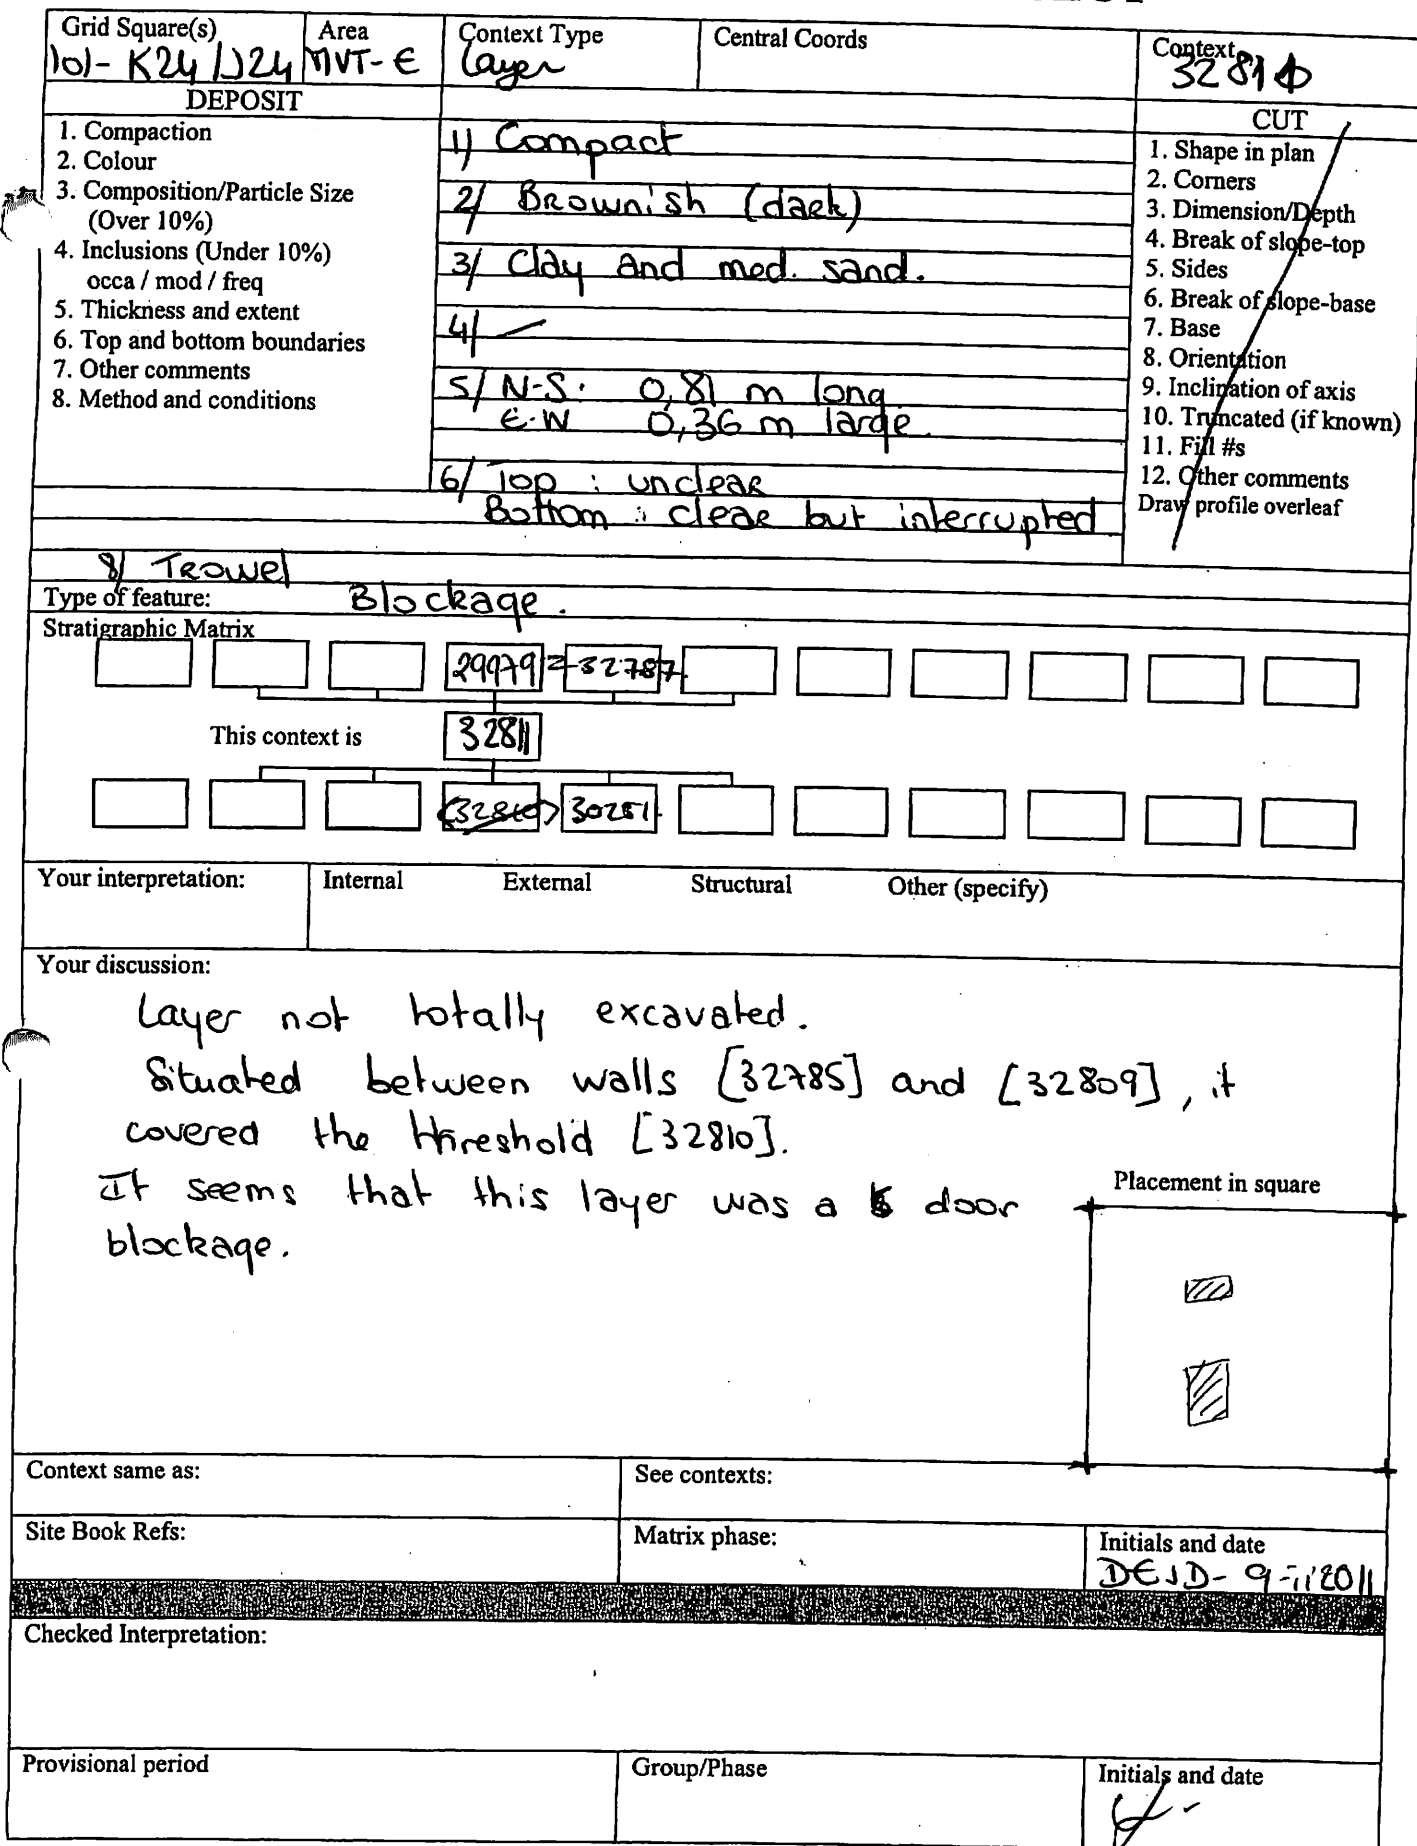 Grid Square(s) Area Context Type Central Coords Context
101- K24 / J24 MVT- E Layer 32811
DEPOSIT CUT
1. Compaction
2. Colour
3. Composition/Particle Size
(Over 10%)
4. Inclusions (Under 10%)
occa / mod / freq
5. Thickness and extent
6. Top and bottom boundaries
7. Other comments
8. Method and conditions
1/ Compact
2/ Brownish (dark)
3/ Clay and med. sand.
4/ —
5/ N-S: 0,81 m long
E-W 0,36 m large.
6/ Top : unclear
Bottom : clear but interrupted
8/ Trowel
1. Shape in plan
2. Corners
3. Dimension/Depth
4. Break of slope-top
5. Sides
6. Break of slope-base
7. Base
8. Orientation
9. Inclination of axis
10. Truncated (if known)
11. Fill #s
12. Other comments
Draw profile overleaf
Type of feature: Blockage.
Stratigraphic Matrix
29979 = 32787
This context is 32811
(32810) 30251
Your interpretation: Internal External Structural Other (specify)
Your discussion:
Layer not totally excavated.
Situated between walls [32785] and [32809], it
covered the threshold [32810].
It seems that this layer was a door
blockage.
Placement in square
Context same as: See contexts:
Site Book Refs: Matrix phase: Initials and date
DEJD- 9
Checked Interpretation:
Provisional period Group/Phase Initials and date